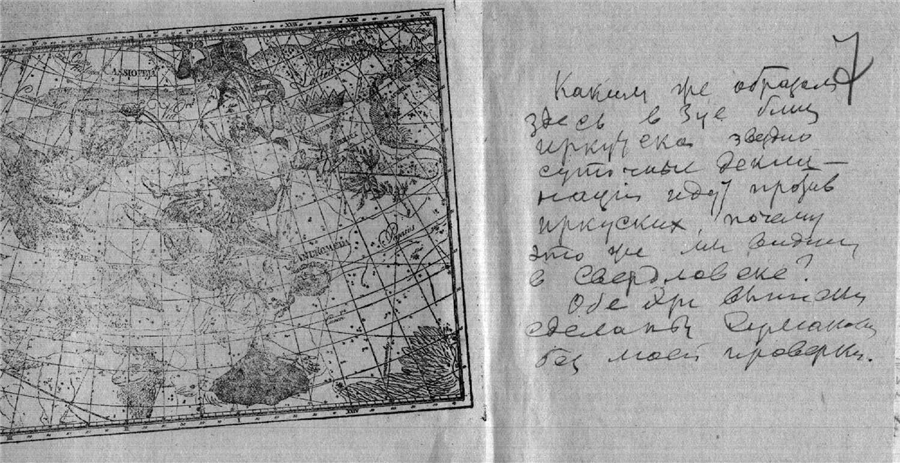 CASSIOPEIA
ANDROMEDA
7
Каким же образом
здесь в Зуе близ
Иркутска звездно
суточные деклин-
нации идут против
Иркуских, почему
это же мы видим
в Свердловске?
Обе эти
сделаны
без моей проверки.